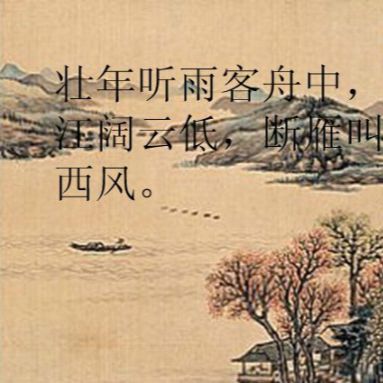 壮年听雨客舟中，
江阔云低，断雁叫
西风。